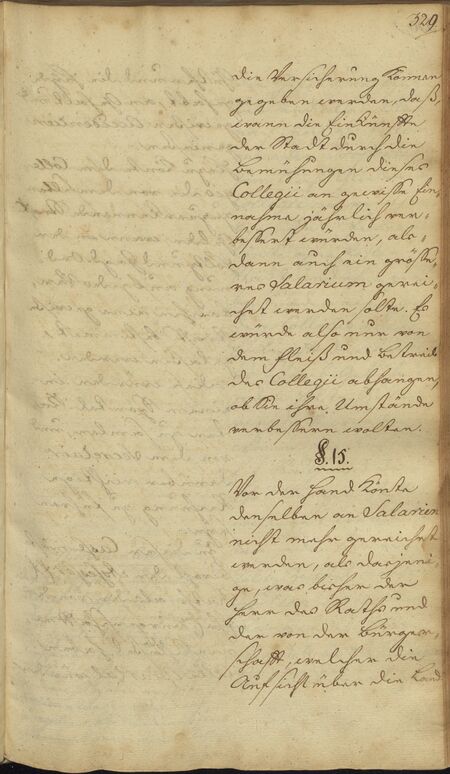 329
die Versicherung können
gegeben werden, daß,
wann die Einkünffte
der Stadt durch die
Bemühungen dieses
Collegii an gewisse Ein-
nahme jährlich ver-
bessert würden, als-
dann auch ein grösse-
res Salarium gerei-
chet werden solte. Es
würde also nur von
dem Fleiß und betrieb
des Collegii abhangen,
ob Sie ihre Umstände
verbessern wolten.
§. 15.
Vor der Hand könte
denselben an Salarien
nicht mehr gereichet
werden, als dasjeni-
ge, was bisher der
Herr des Raths und
der von der Bürger-
schafft, welcher die
Aufsicht über die Land